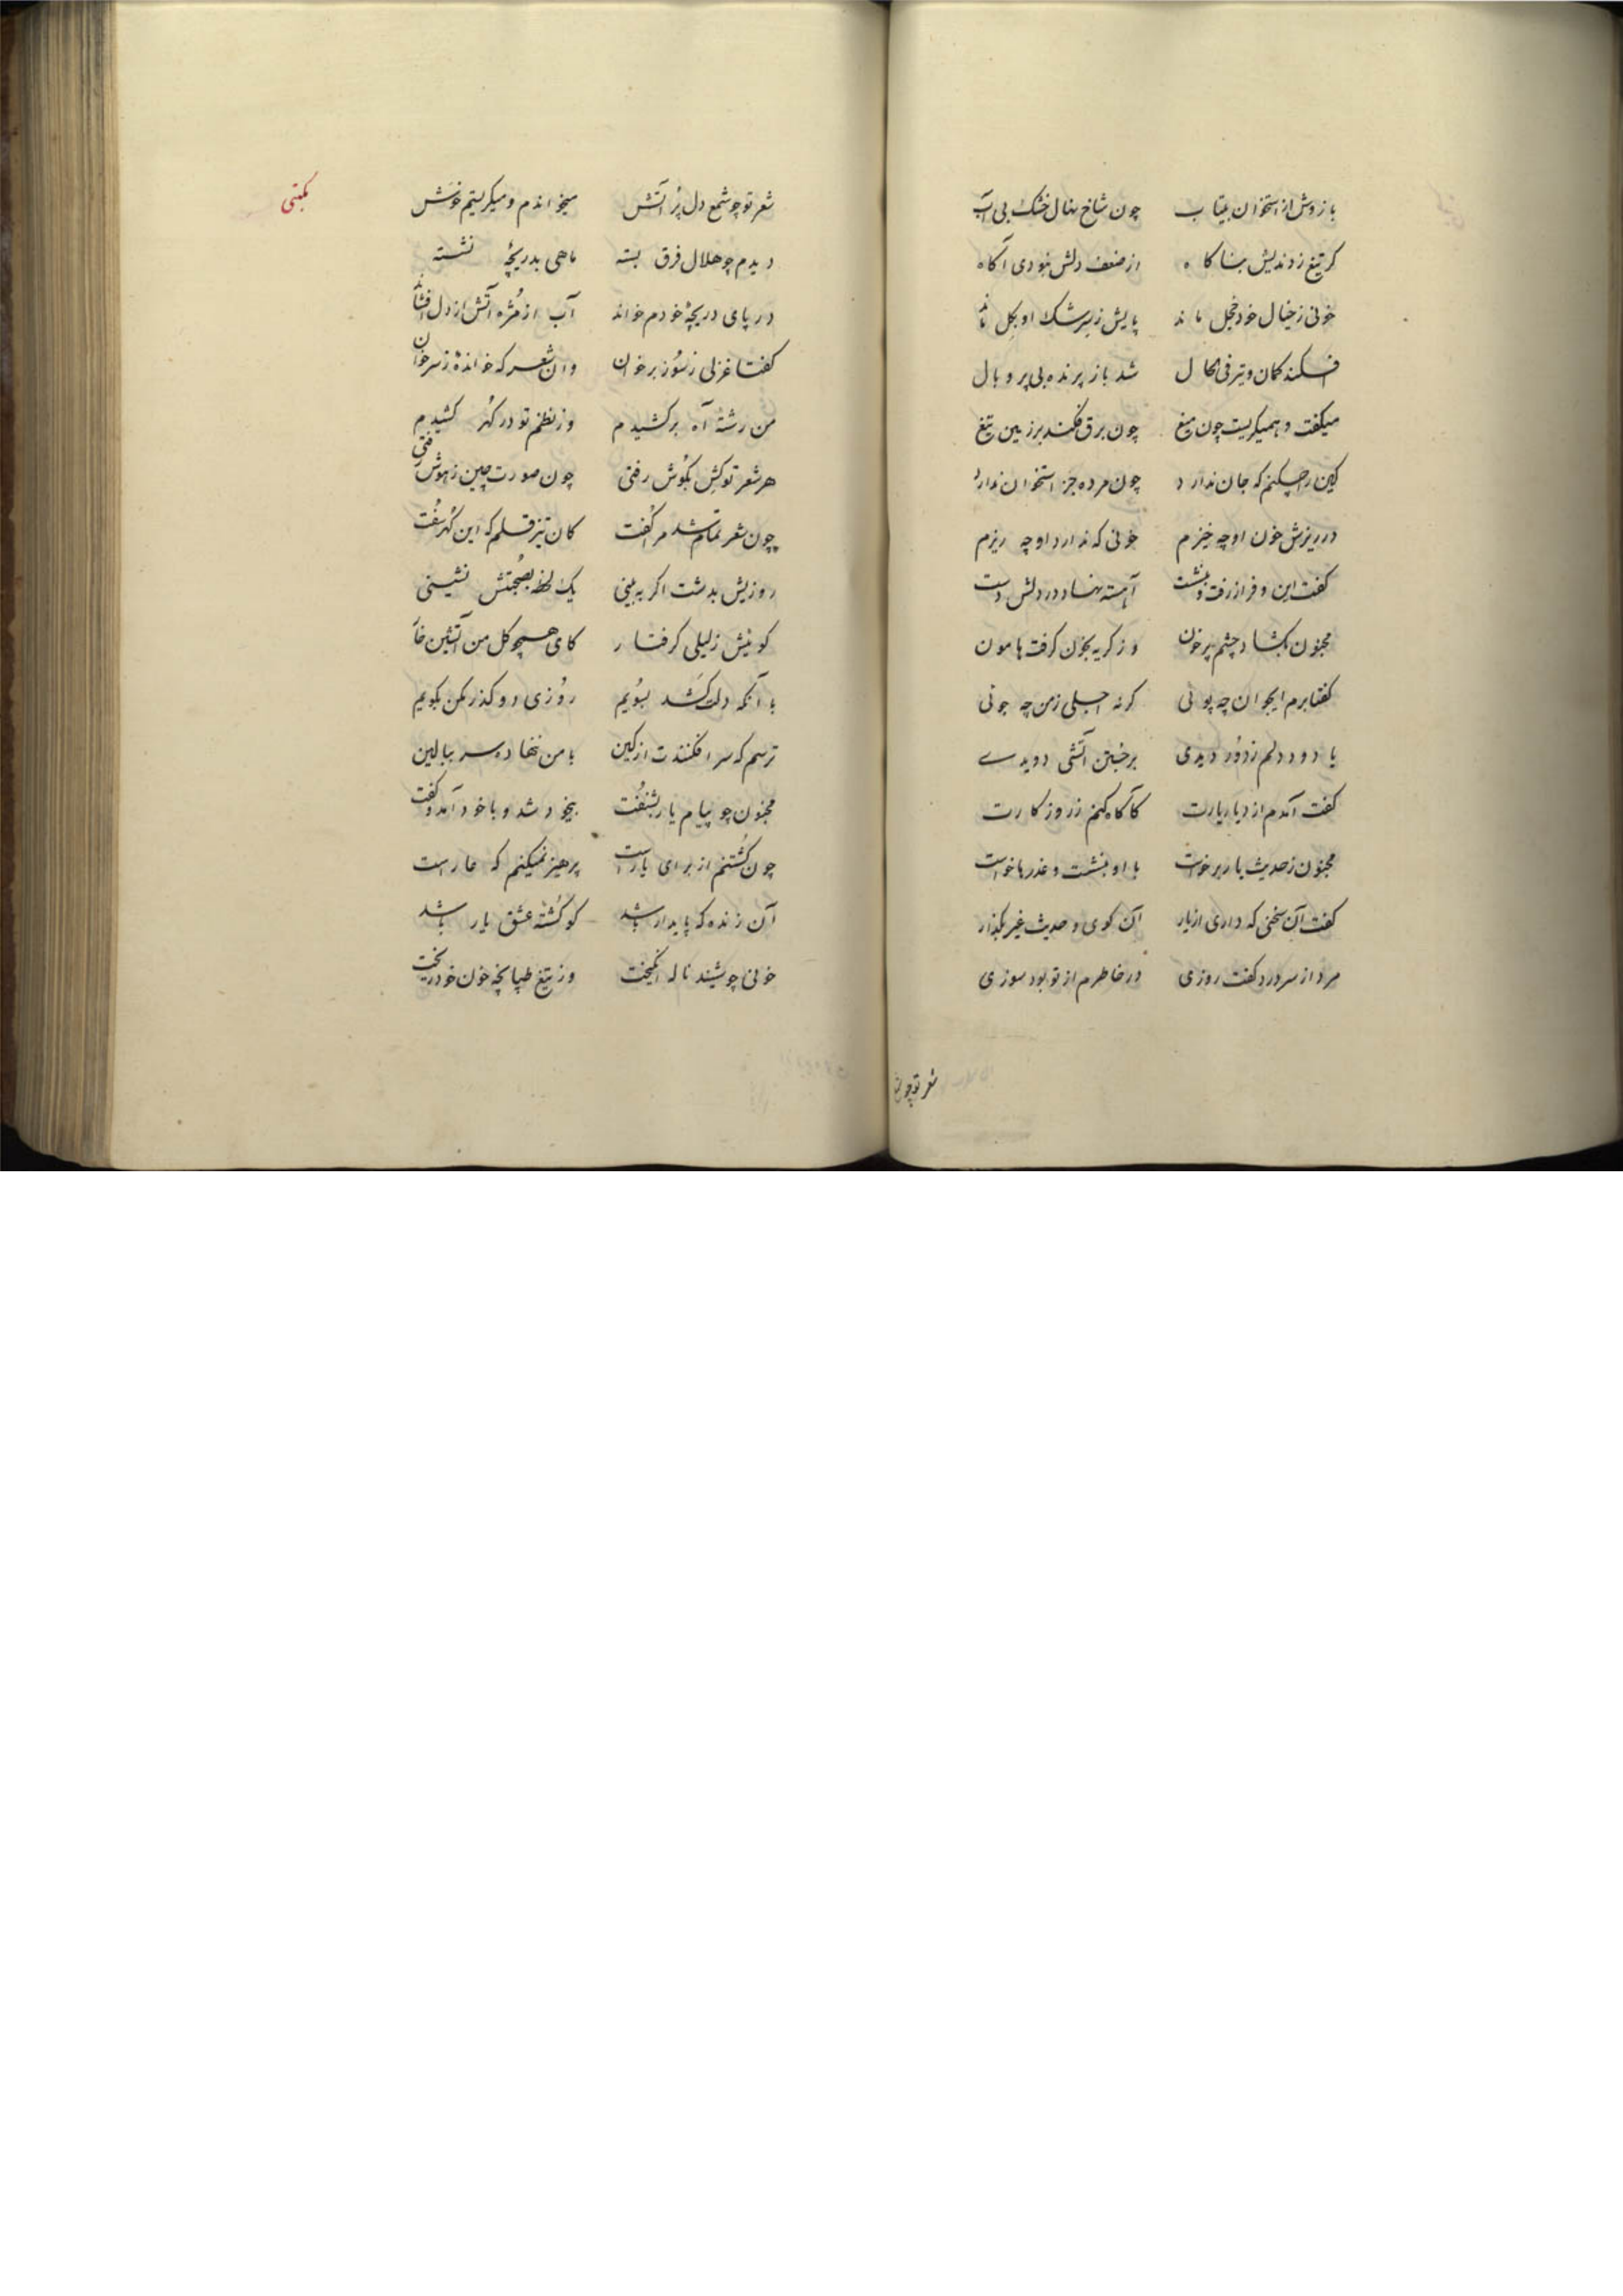 بازوش از استخوان بیتاب چون شاخ نهال خشک بی آب
کر تیغ زدندیش بناکاه از ضعف دلش نبودی آگاه
خونی ز خیال خود خجل ماند پایش ز سرشک او بکل ماند
افکند کمان و تیر فی الحال شد باز پرنده بی پر و بال
میکفت و همیکریست چون میغ چون برق فکند بر زمین تیغ
کین را چکنم که جان ندارد چون مرده جز استخوان ندارد
در ریزش خون او چه خیزم خونی که ندارد او چه ریزم
کفت این و فراز رفت و بنشست آهسته نهاد در دلش دست
مجنون بکشاد چشم پر خون وز کریه بخون کرفت هامون
کفتا برم ایجوان چه پوئی کر نه اجلی ز من چه جوئی
یا دود دلم ز دور دیدی بر جستن آتشی دویدی
کفت آمدم از دیار یارت کآکاه کنم ز روز کارت
مجنون ز حدیث یار برخواست با او بنشست و عذرها خواست
کفت آن سخنی که داری از یار آن کوی و حدیث غیر بکذار
مرد از سر درد کفت روزی در خاطرم از تو بود سوزی
شعر تو چو شمع
مکتبی
شعر تو چو شمع دل پر آتش میخواندم و میکریستم خوش
دیدم چو هلال فرق بسته ماهی بدریچهٔ نشسته
در پای دریچهٔ خودم خواند آب از مژه آتش از دل افشاند
کفتا غزلی ز سوز بر خوان وان شعر که خواندهٔ ز سر خوان
من رشتهٔ آه برکشیدم وز نظم تو در کهر کشیدم
هر شعر توکش بکوش رفتی چون صورت چین ز هوش رفتی
چون شعر تمام شد مرا کفت کان تیز قلم که این کهر سفت
روزیش بدشت اکر به بینی یک لحظه بصحبتش نشینی
کوئیش ز لیلی کرفتار کای همچو کل من آتشین خار
با آنکه دلت کشد بسویم روزی دو کذر مکن بکویم
ترسم که سر افکنندت از کین با من ننهاده سر ببالین
مجنون چو پیام یار بشنفت بیخود شد و با خود آمد و کفت
چون کشتنم از برای یار است پرهیز نمیکنم که عار است
آن زنده که پایدار باشد کو کشتهٔ عشق یار باشد
خونی چو شنید ناله انکیخت وز تیغ طپانچه خون خود ریخت